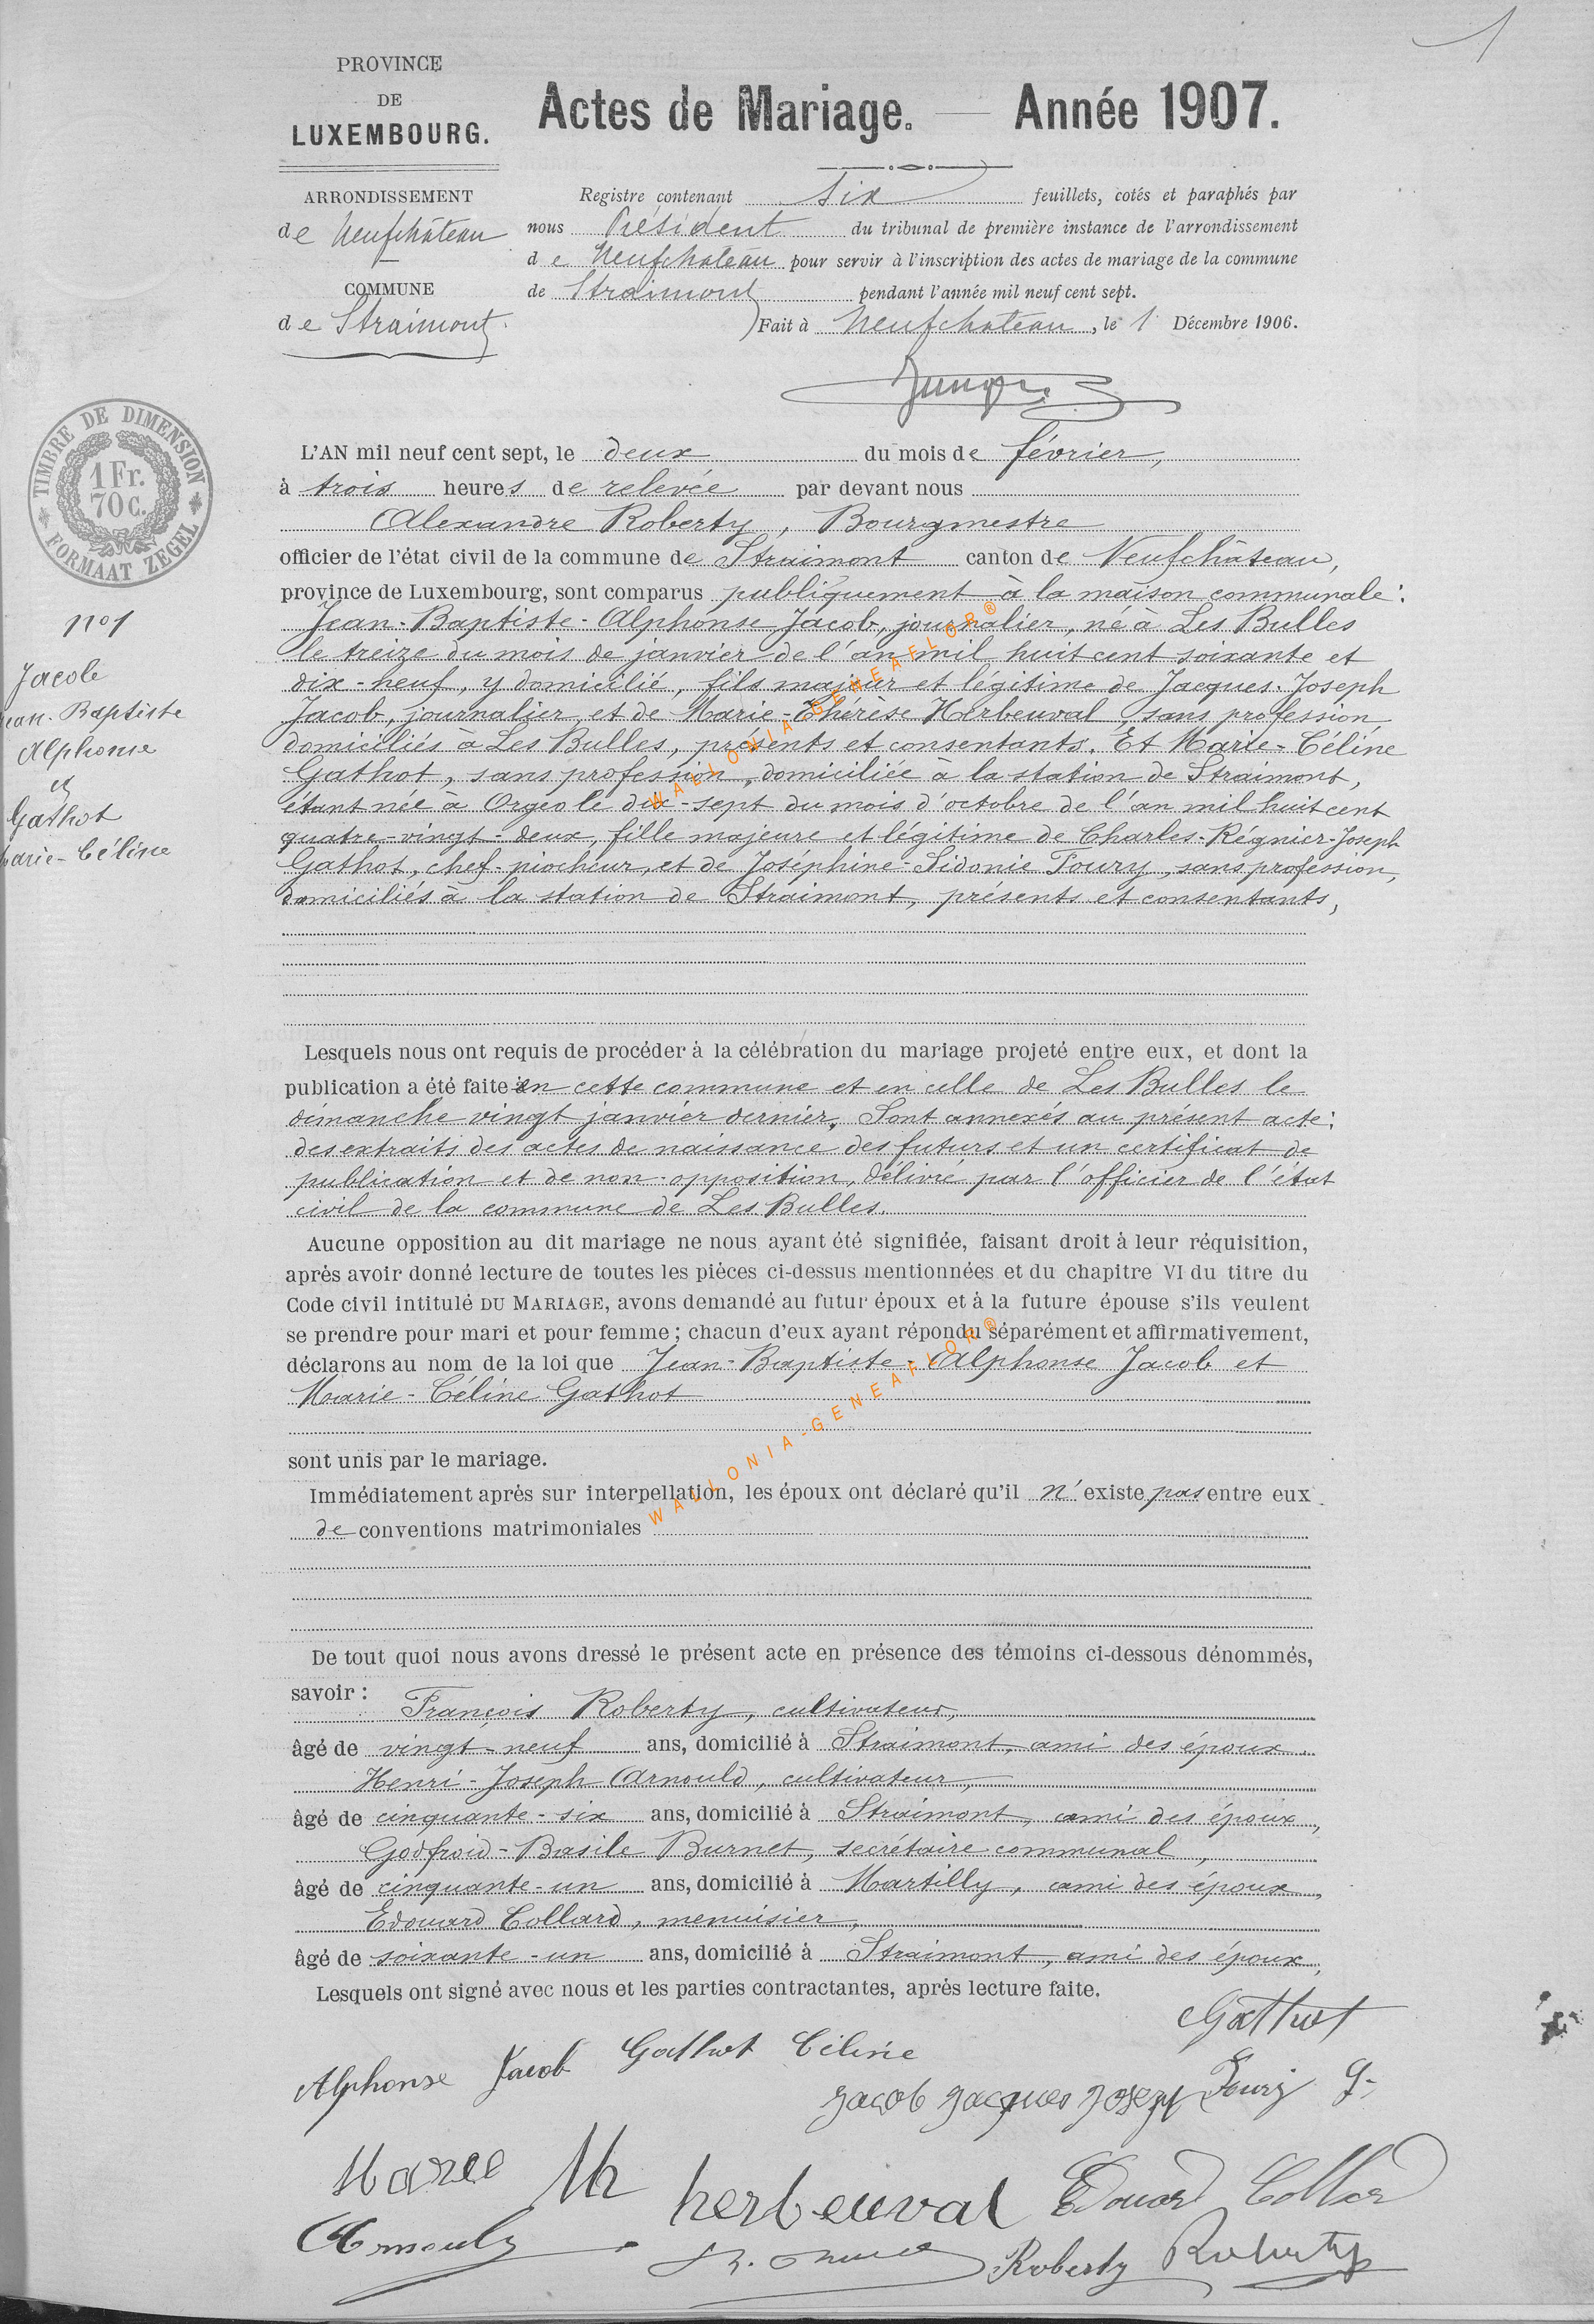 1
PROVINCE
DE
LUXEMBOURG.
Actes de Mariage. — Année 1907.
ARRONDISSEMENT
de Neufchâteau
COMMUNE
de Straimont
Registre contenant six feuillets, cotés et paraphés par
nous Président du tribunal de première instance de l'arrondissement
de Neufchâteau pour servir à l'inscription des actes de mariage de la commune
de Straimont pendant l'année mil neuf cent sept.
Fait à Neufchateau, le 1 Décembre 1906.
TIMBRE DE DIMENSION
1 Fr.
70 c.
FORMAAT ZEGEL
n° 1
Jacob
Jean-Baptiste
Alphonse
et
Gathot
Marie-Céline
L'AN mil neuf cent sept, le deux du mois de février,
à trois heures de relevée par devant nous
Alexandre Roberty, Bourgmestre
officier de l'état civil de la commune de Straimont canton de Neufchâteau,
province de Luxembourg, sont comparus publiquement à la maison communale :
Jean-Baptiste-Alphonse Jacob, journalier, né à Les Bulles
le treize du mois de janvier de l'an mil huit cent soixante et
dix-neuf, y domicilié, fils majeur et légitime de Jacques-Joseph
Jacob, journalier, et de Marie-Thérèse Herbeuval, sans profession,
domiciliés à Les Bulles, présents et consentants. Et Marie-Céline
Gathot, sans profession, domiciliée à la station de Straimont,
étant née à Orgeo le dix-sept du mois d'octobre de l'an mil huit cent
quatre-vingt-deux, fille majeure et légitime de Charles-Régnier-Joseph
Gathot, chef-piocheur, et de Joséphine-Sidonie Foury, sans profession,
domiciliés à la station de Straimont, présents et consentants,
Lesquels nous ont requis de procéder à la célébration du mariage projeté entre eux, et dont la
publication a été faite en cette commune et en celle de Les Bulles le
dimanche vingt janvier dernier. Sont annexés au présent acte :
des extraits des actes de naissance des futurs et un certificat de
publication et de non-opposition, délivré par l'officier de l'état
civil de la commune de Les Bulles.
Aucune opposition au dit mariage ne nous ayant été signifiée, faisant droit à leur réquisition,
après avoir donné lecture de toutes les pièces ci-dessus mentionnées et du chapitre VI du titre du
Code civil intitulé DU MARIAGE, avons demandé au futur époux et à la future épouse s'ils veulent
se prendre pour mari et pour femme ; chacun d'eux ayant répondu séparément et affirmativement,
déclarons au nom de la loi que Jean-Baptiste-Alphonse Jacob et
Marie-Céline Gathot
sont unis par le mariage.
Immédiatement après sur interpellation, les époux ont déclaré qu'il n'existe pas entre eux
de conventions matrimoniales
De tout quoi nous avons dressé le présent acte en présence des témoins ci-dessous dénommés,
savoir : François Roberty, cultivateur,
âgé de vingt-neuf ans, domicilié à Straimont, ami des époux
Henri-Joseph Arnould, cultivateur,
âgé de cinquante-six ans, domicilié à Straimont, ami des époux,
Godfroid-Basile Burnet, secrétaire communal,
âgé de cinquante-un ans, domicilié à Martilly, ami des époux,
Edouard Collard, menuisier,
âgé de soixante-un ans, domicilié à Straimont, ami des époux,
Lesquels ont signé avec nous et les parties contractantes, après lecture faite.
Gathot
Alphonse Jacob Gathot Céline
Jacob Jacques Joseph Foury J-
Marie Th herbeuval Edouard Collard
Arnould Roberty Roberty
WALLONIA-GENEAFLOR®
WALLONIA-GENEAFLOR®